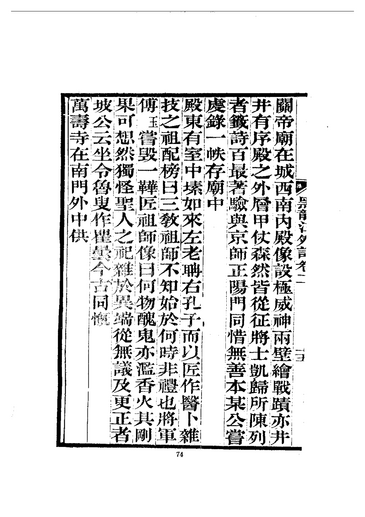 黑龍江外記卷二
關帝廟在城西南內殿像設極威神兩壁繪戰蹟亦井
井有序殿之外層甲仗森然皆從征將士凱歸所陳列
者籤詩百最著驗與京師正陽門同惜無善本某公嘗
虔錄一帙存廟中
殿東有室中塐如來左老聃右孔子而以匠作醫卜雜
技之祖配榜曰三敎祖師不知始於何時非禮也將軍
傅玉嘗毀一鞾匠祖師像曰何物醜鬼亦濫香火其剛
果可想然獨怪聖人之祀雜於異端從無議及更正者
坡公云坐令魯叟作瞿曇今古同慨
萬壽寺在南門外中供
74